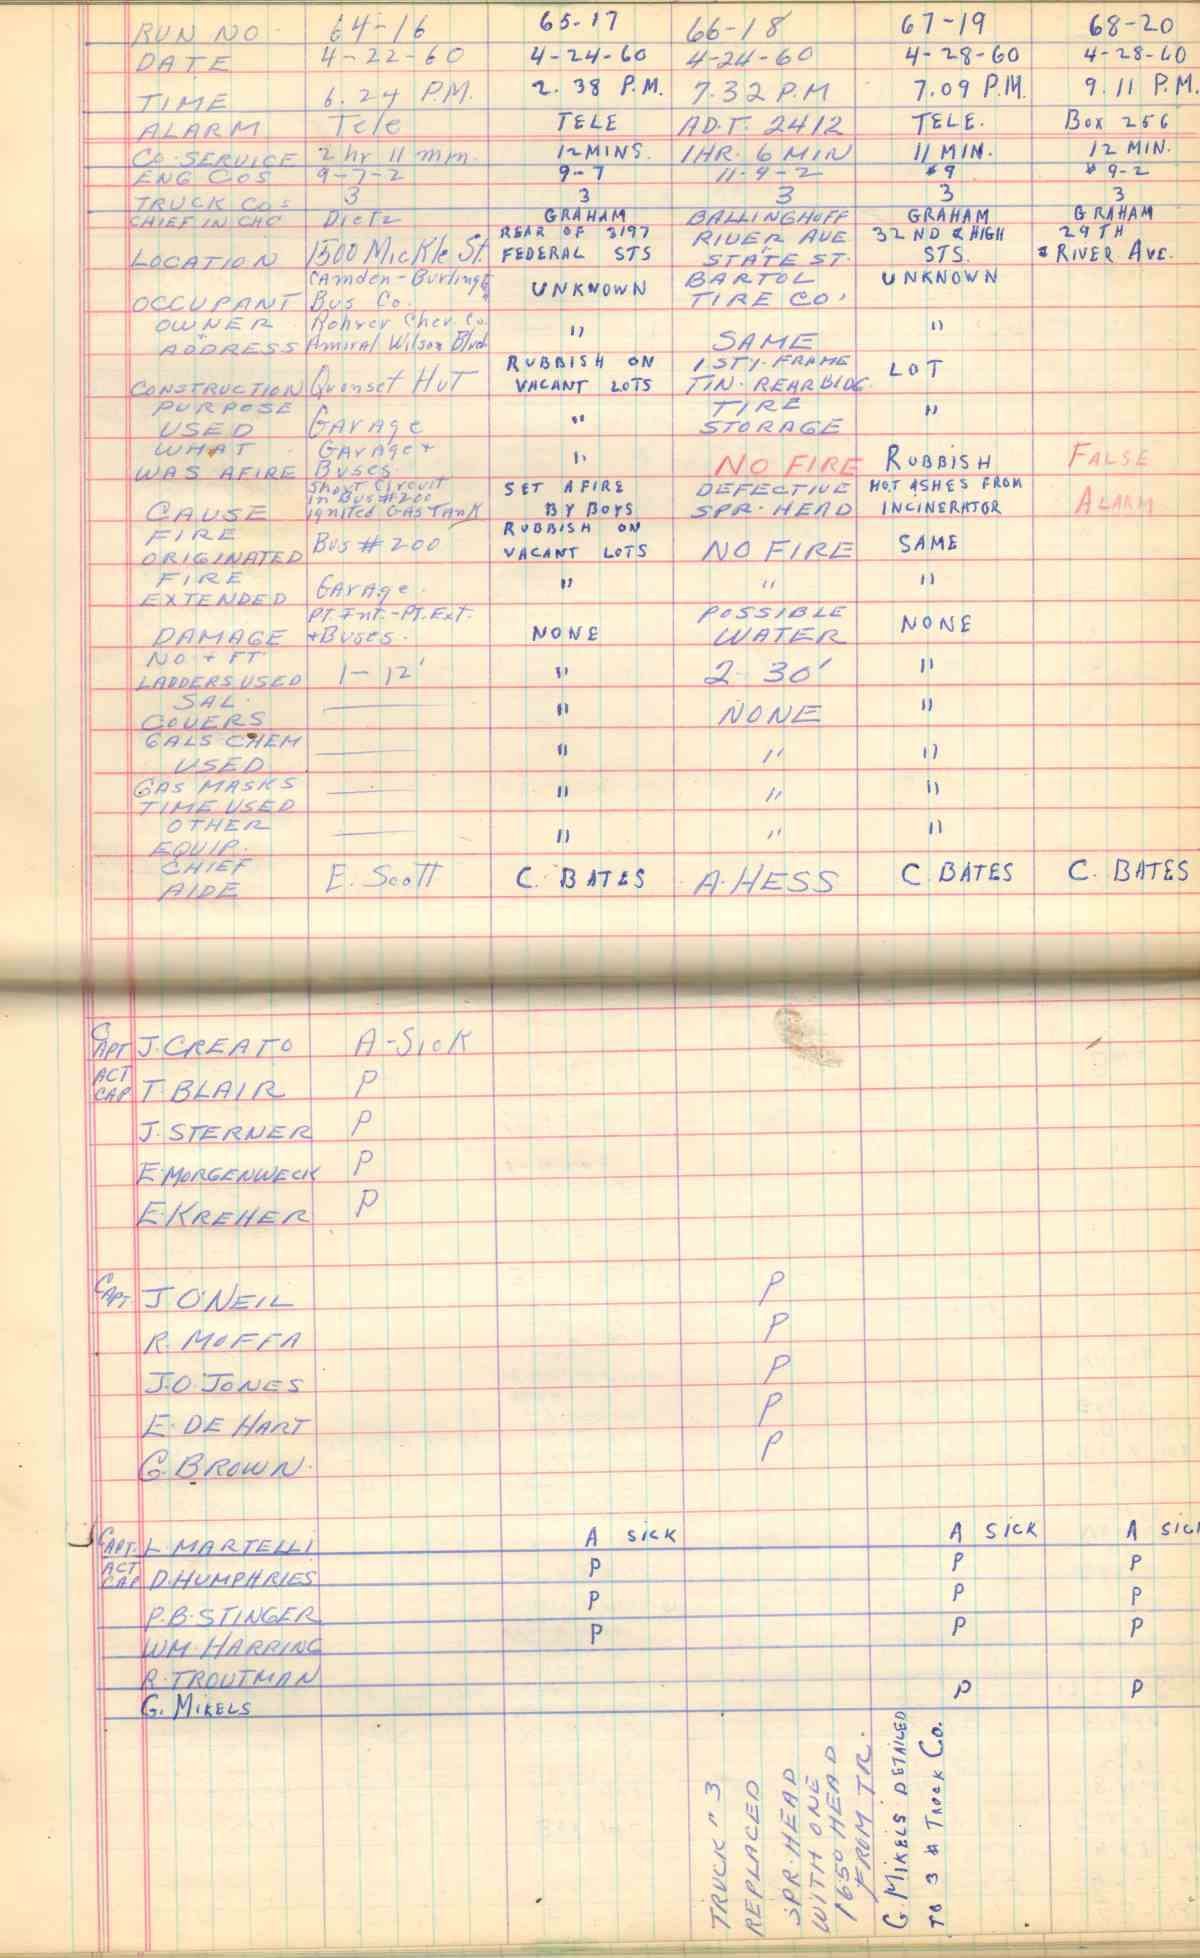 RUN NO 64-16 65-17 66-18 67-19 68-20
DATE 4-22-60 4-24-60 4-24-60 4-28-60 4-28-60
TIME 6.24 P.M. 2.38 P.M. 7.32 P.M 7.09 P.M. 9.11 P.M.
ALARM Tele TELE A.D.T. 2412 TELE. Box 256
CO. SERVICE 2 hr 11 mm. 12 MINS. 1 HR. 6 MIN 11 MIN. 12 MIN.
ENG COS 9-7-2 9-7 11-9-2 #9 # 9-2
TRUCK COS 3 3 3 3 3
CHIEF IN CHG Dietz GRAHAM BALLINGHOFF GRAHAM GRAHAM
REAR OF 3197 RIVER AVE 32ND & HIGH 29TH
LOCATION 1500 Mickle St. FEDERAL STS STATE ST. STS. & RIVER AVE.
Camden-Burlingt BARTOL UNKNOWN
OCCUPANT Bus Co. UNKNOWN TIRE CO.
OWNER Rohrer Chev. Co. " "
ADDRESS Amiral Wilson Blvd SAME
RUBBISH ON 1 STY. FRAME
CONSTRUCTION Quonset Hut VACANT LOTS TIN. REAR BLDG. LOT
PURPOSE TIRE
USED GArAge " STORAGE "
WHAT GArAge +
WAS AFIRE Buses " NO FIRE RUBBISH FALSE
Short Circuit
in Bus #200 SET AFIRE DEFECTIVE HOT ASHES FROM
CAUSE ignited GAS TANK BY BOYS SPR. HEAD INCINERATOR ALARM
FIRE RUBBISH ON
ORIGINATED Bus # 200 VACANT LOTS NO FIRE SAME
FIRE
EXTENDED GArAge. " " "
PT. Int.-PT. Ext. POSSIBLE
DAMAGE +Buses. NONE WATER NONE
NO + FT
LADDERS USED 1-12' " 2-30' "
SAL.
COVERS " NONE "
GALS CHEM
USED " " "
GAS MASKS
TIME USED " " "
OTHER
EQUIP. " " "
CHIEF
AIDE E. Scott C. BATES A. HESS C. BATES C. BATES
CAPT J. CREATO A-SICK
ACT CAP T. BLAIR P
J. STERNER P
E. MORGENWECK P
E. KREHER P
CAPT. J O'NEIL P
R. MOFFA P
J.O. JONES P
E. DE HART P
G. BROWN. P
CAPT. L. MARTELLI A SICK A SICK A SICK
ACT CAP D. HUMPHRIES P P P
P.B. STINGER P P P
WM. HARRING P P P
R. TROUTMAN
G. MIKELS P P
TRUCK " 3
REPLACED
SPR. HEAD
WITH ONE
1650 HEAD
FROM TR.
G. MIKELS DETAILED
TO 3 # TRUCK CO.